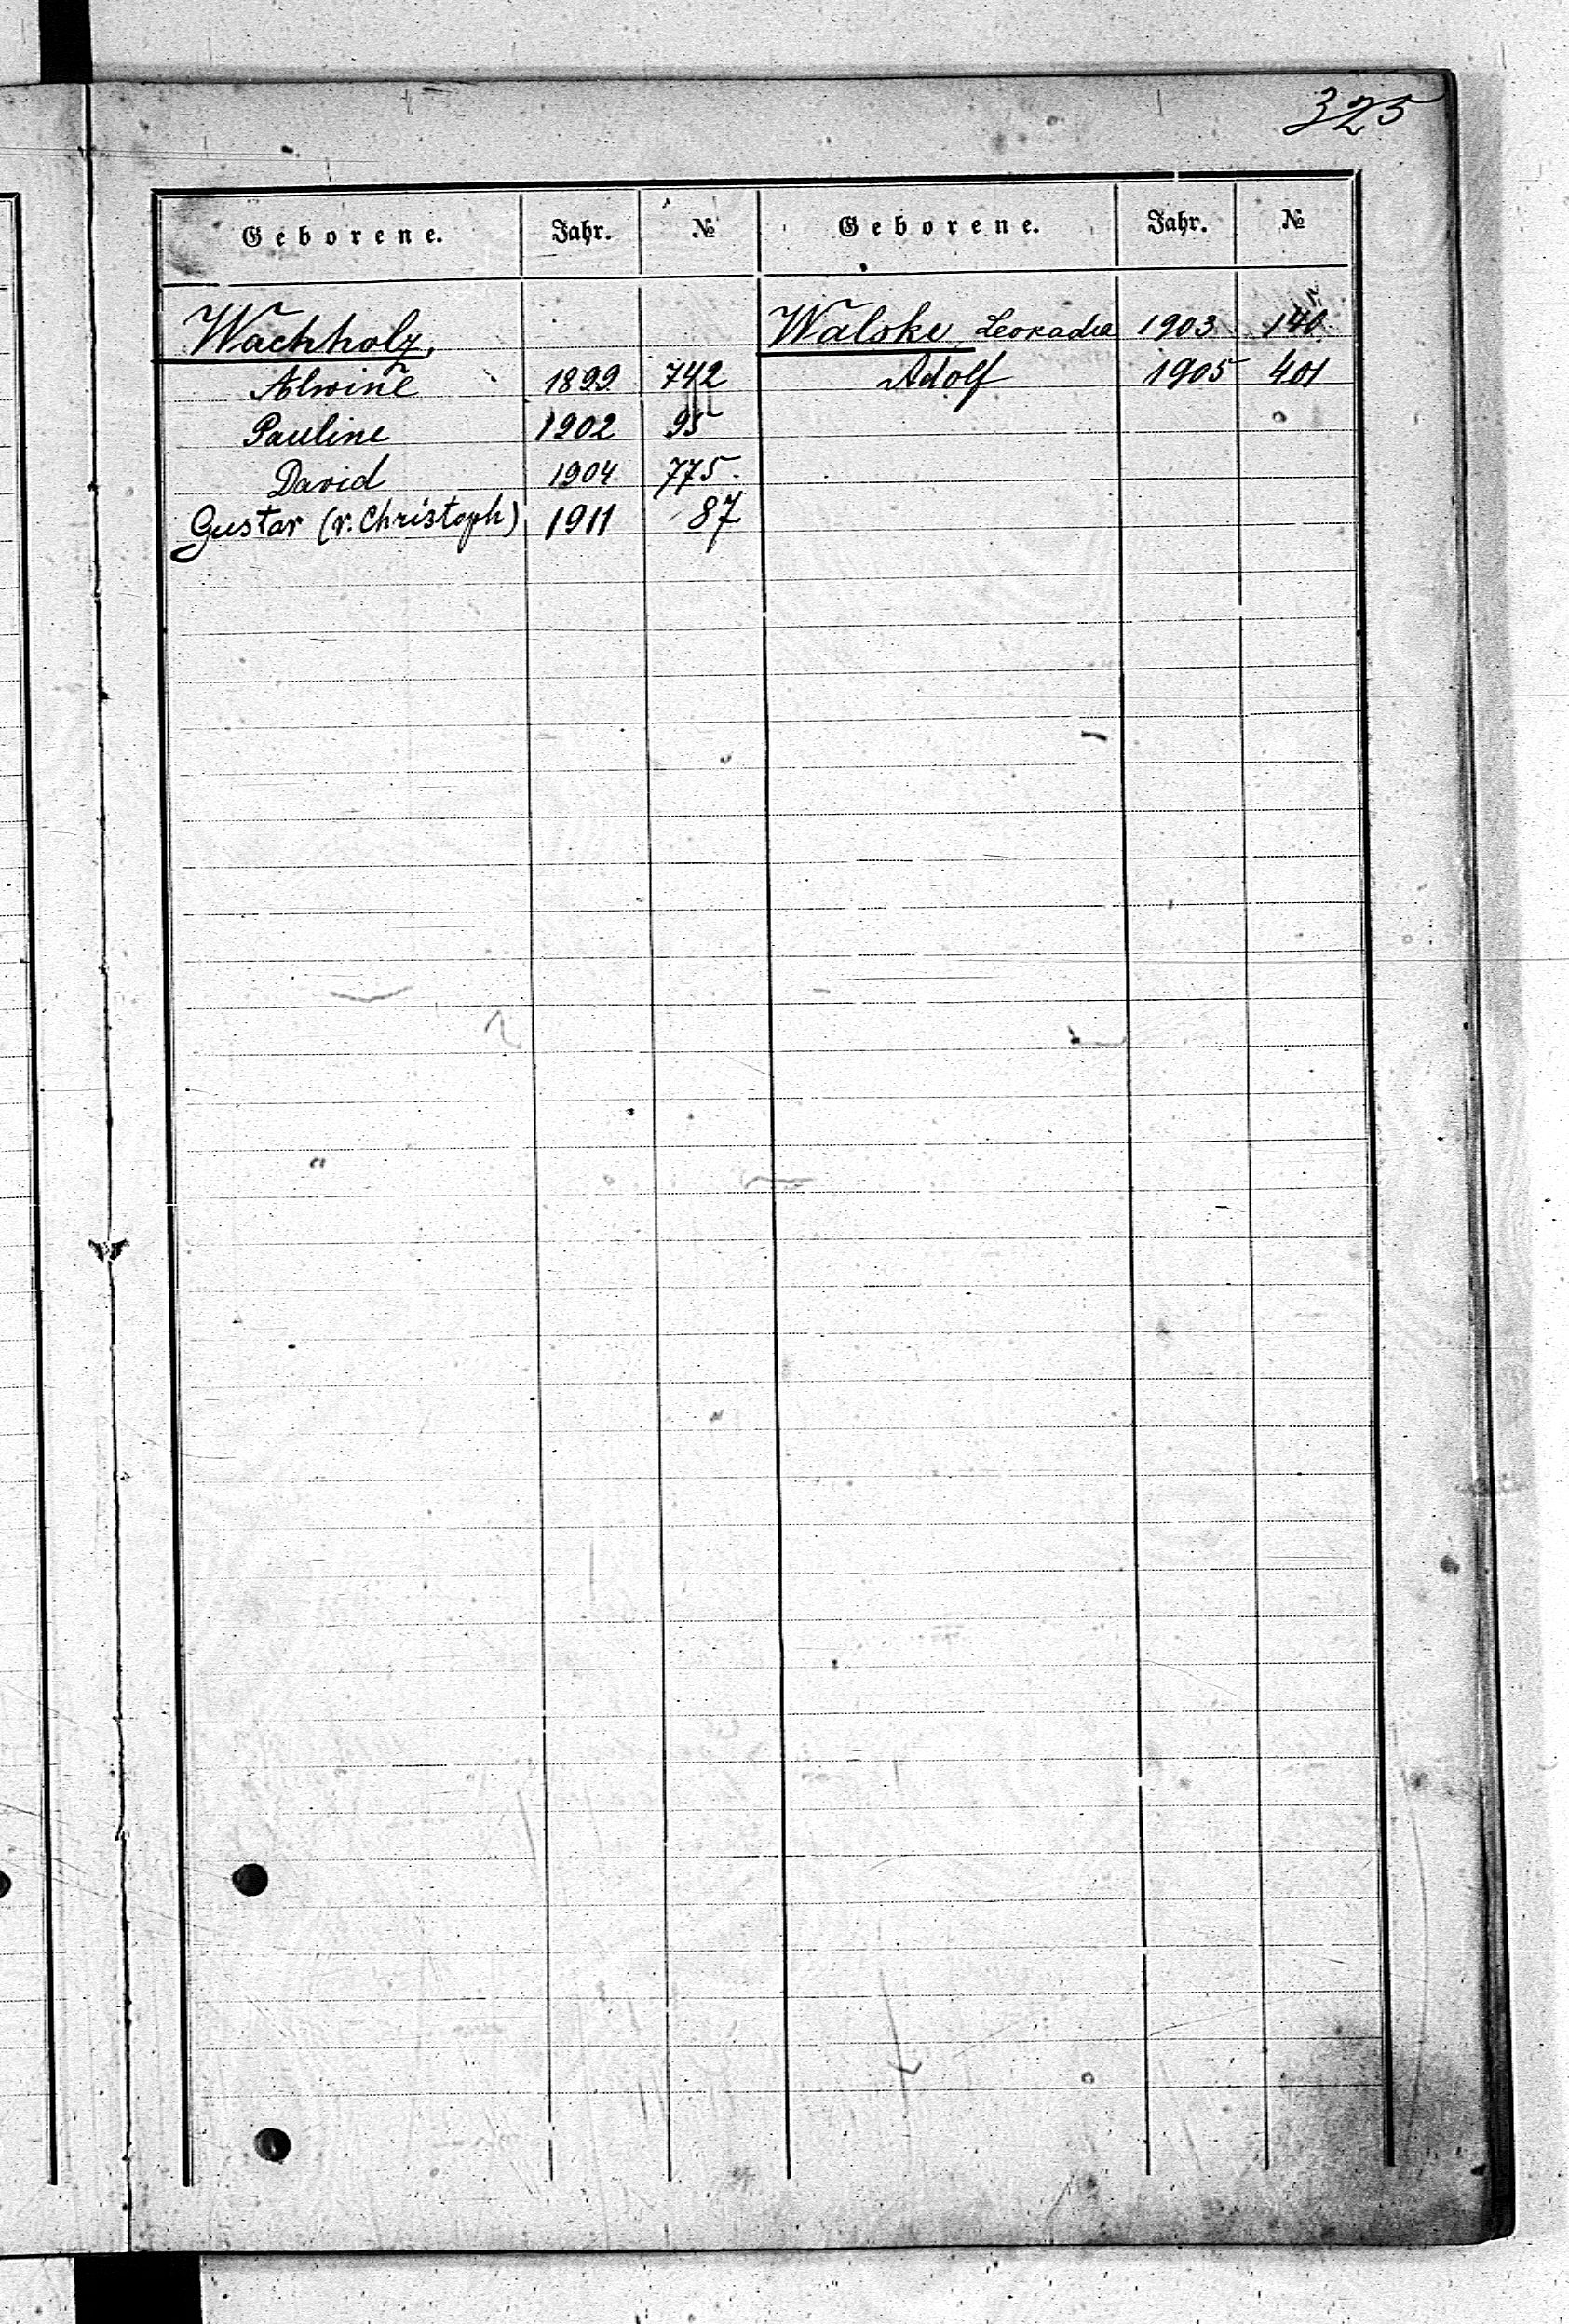 325
Geborene. Jahr. № Geborene. Jahr. №
Wachholz,
Alwine 1899 742
Pauline 1902 95
David 1904 775.
Gustav (v. Christoph) 1911 87
Walske, Leokadia 1903 140.
Adolf 1905 401